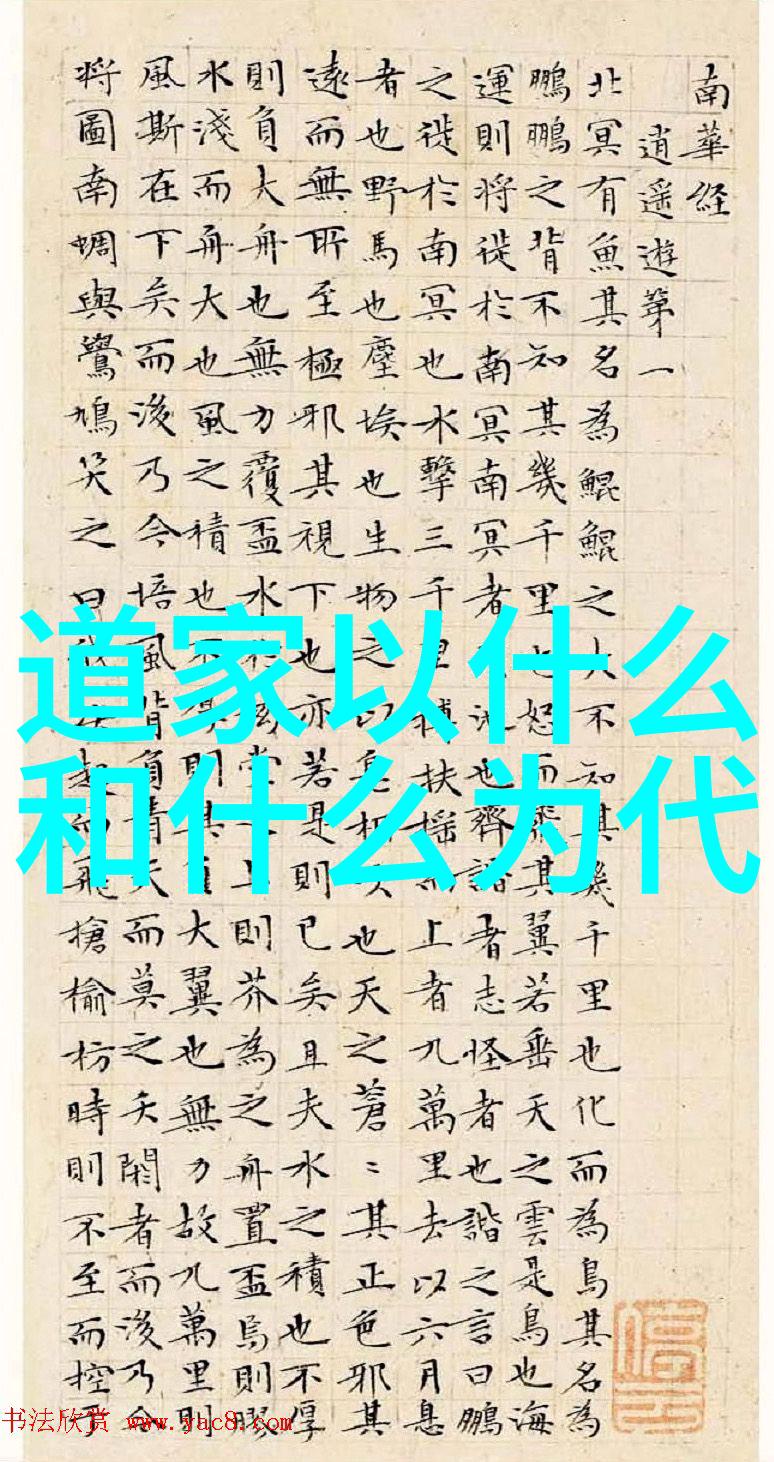 南華経
逍遥遊第一
北冥有魚其名為鯤鯤之大不知其幾千里也化而為鳥其名為
鵬鵬之背不知其幾千里也怒而飛其翼若垂天之雲是鳥也海
運則将徙於南冥南冥者池也齊諧者志怪者也諧之言曰鵬
之徙於南冥也水擊三千里摶扶摇而上者九萬里去以六月息
者也野馬也塵埃也生物之以息相吹也天之蒼〻其正色邪其
遠而無所至極邪其視下也亦若是則已矣且夫水之積也不厚
則負大舟也無力覆盃水於堂上則芥為之舟置盃焉則膠
水淺而舟大也風之積也不則其負大翼也無力故九萬里則
風斯在下矣而後乃今培風背負青天而莫之夭閼者而後乃今
将圖南蜩與鷽鳩笑之曰起而飛搶榆枋時則不至而控
道家以什么
和什么为代
书法欣赏 www.yac8.com